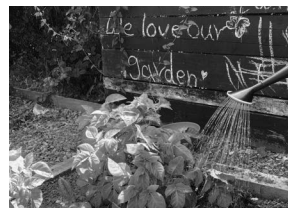 We love our
garden